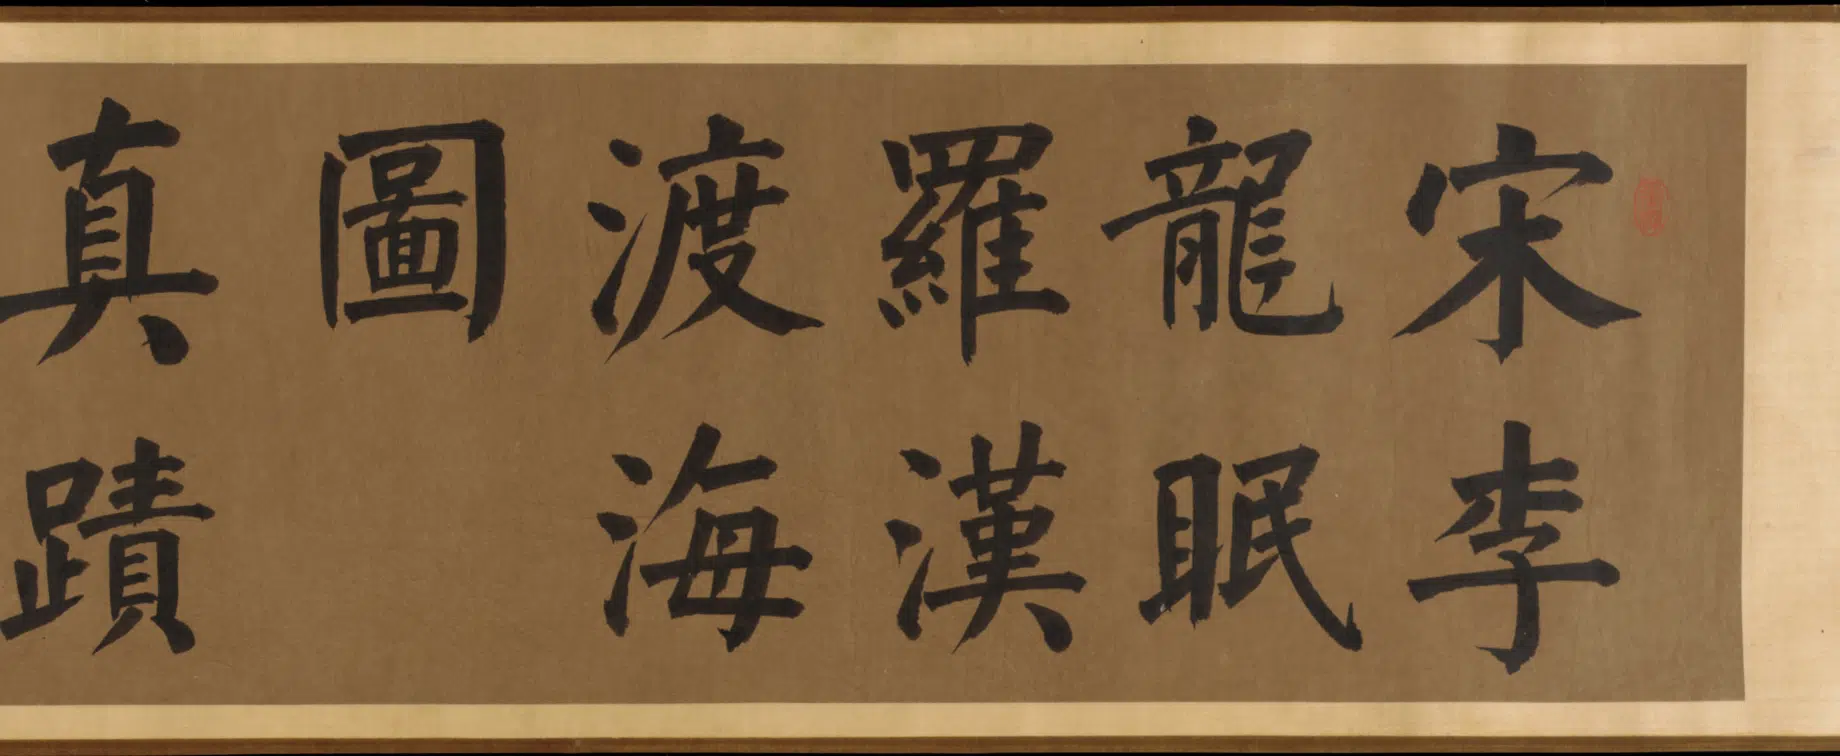 宋李
龍眠
羅漢
渡海
圖
真蹟